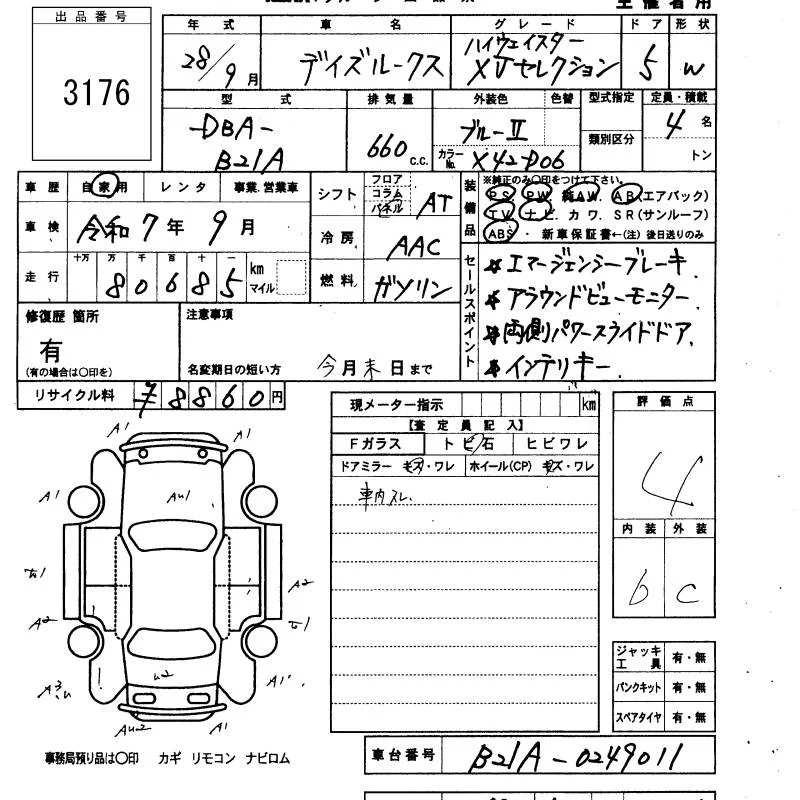 出品番号
3176
年式 車名 グレード ドア 形状
28/9月 デイズルークス ハイウェイスター XVセレクション 5 W
型式 排気量 外装色 色替 型式指定 定員・積載
DBA-B21A 660c.c. ブルーII 類別区分 4名
カラーNo. X42-P06 トン
車歴 自家用 レンタ 事業.営業車
車検 令和7年9月
走行 十万 万 千 百 十 一
80685 km マイル
シフト フロア コラム パネル AT
冷房 AAC
燃料 ガソリン
装備品 ※純正のみ〇印をつけて下さい。
PS. PW. 純AW. AB(エアバック)
TV ナビ. カワ. SR(サンルーフ)
ABS ・ 新車保証書←(注) 後日送りのみ
セールスポイント
エマージェンシーブレーキ
アラウンドビューモニター.
両側パワースライドドア.
インテリキー.
修復歴 箇所
有
(有の場合は〇印を)
注意事項
名変期日の短い方 今月末日まで
リサイクル料 ¥8860円
現メーター指示 km
【査定員記入】
Fガラス トビ石 ヒビワレ
ドアミラー キズ・ワレ ホイール(CP) キズ・ワレ
車内スレ.
評価点
4
内装 外装
b c
A1 A1
A1 AU1 A1
A2
A2
U2 A1
AU2 A1
ジャッキ工具 有・無
パンクキット 有・無
スペアタイヤ 有・無
事務局預り品は〇印 カギ リモコン ナビロム
車台番号 B21A-0249011